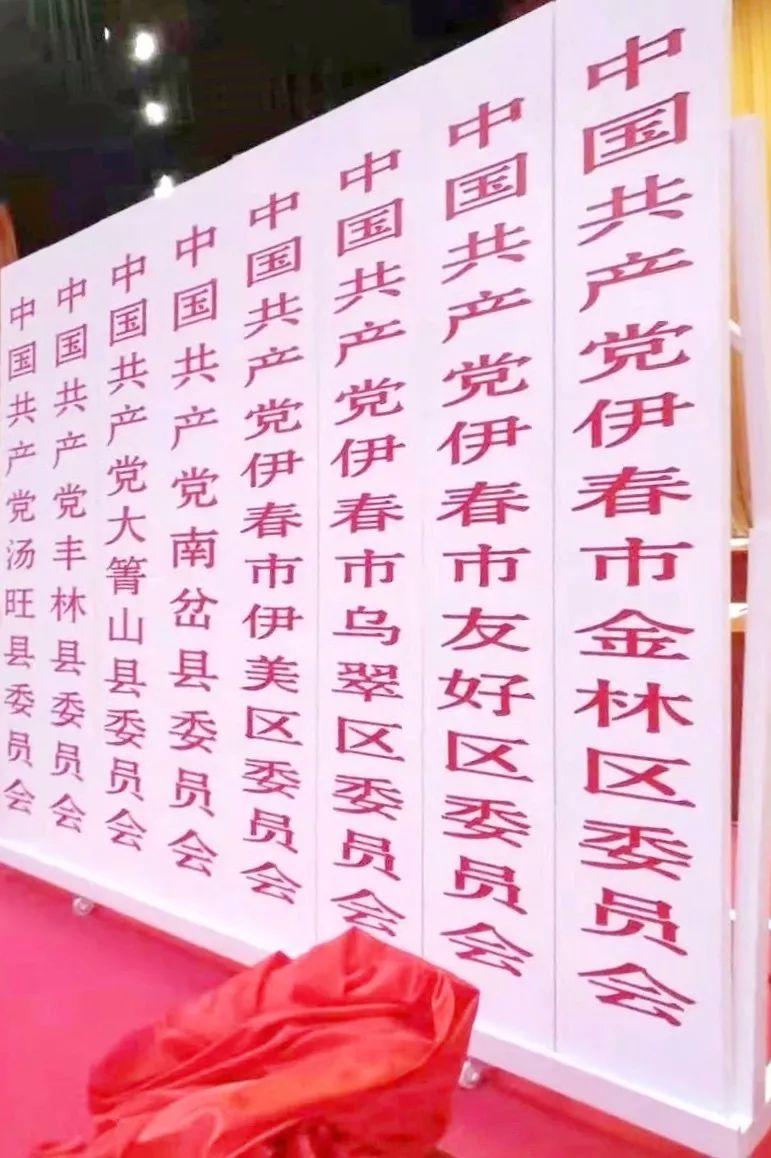 中国共产党汤旺县委员会
中国共产党丰林县委员会
中国共产党大箐山县委员会
中国共产党南岔县委员会
中国共产党伊春市伊美区委员会
中国共产党伊春市乌翠区委员会
中国共产党伊春市友好区委员会
中国共产党伊春市金林区委员会